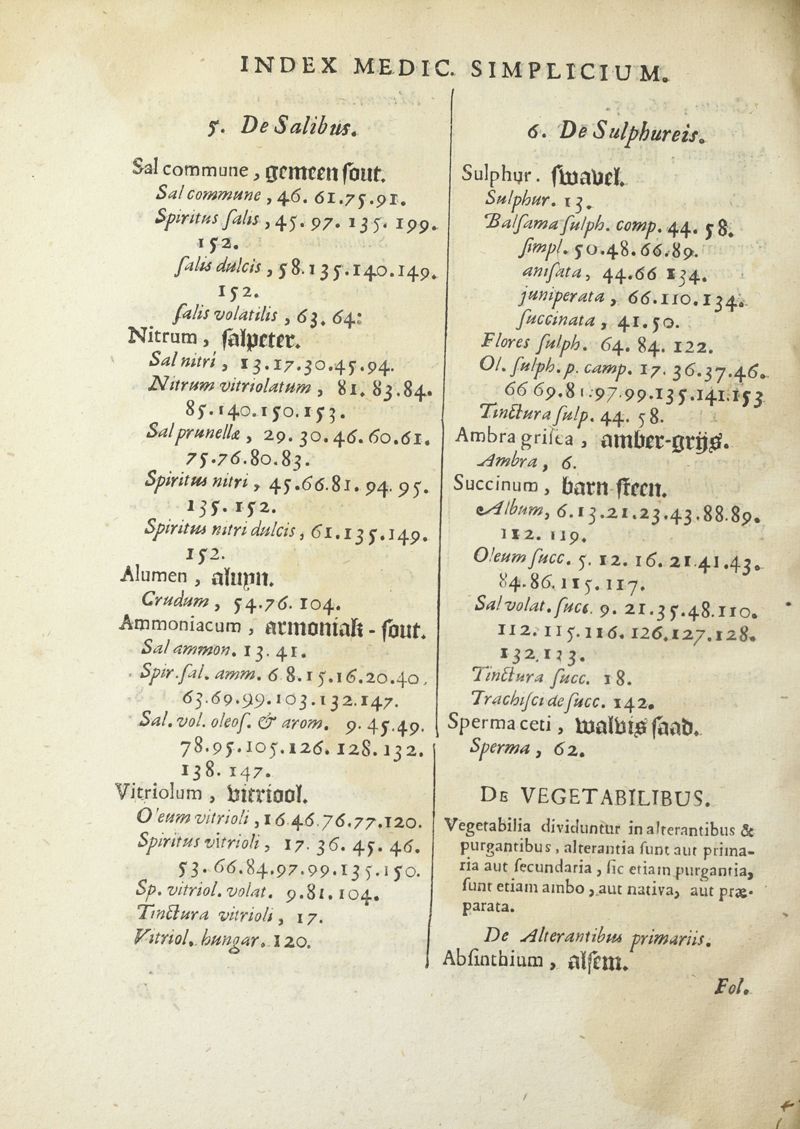 INDEX MEDIC. SIMPLICIUM.
5. De Salibus.
Sal commune, gemeen sout.
Sal commune, 46. 61.75.91.
Spiritus salis, 45. 97. 135. 199.
152.
salis dulcis, 58.135.140.149.
152.
salis volatilis, 63. 64:
Nitrum, salpeter.
Sal nitri, 13.17.30.45.94.
Nitrum vitriolatum, 81. 83.84.
85.140.150.153.
Sal prunellæ, 29. 30.46.60.61.
75.76.80.83.
Spiritus nitri, 45.66.81. 94. 95.
135. 152.
Spiritus nitri dulcis, 61.135.149.
152.
Alumen, aluyn.
Crudum, 54.76. 104.
Ammoniacum, armoniak-sout.
Sal ammon. 13. 41.
Spir. sal. amm. 6 8.15.16.20.40.
63.69.99.103.132.147.
Sal. vol. oleos. & arom. 9. 45.49.
78.95.105.126. 128. 132.
138. 147.
Vitriolum, vitriool.
O'eum vitrioli, 16 46.76.77.120.
Spiritus vitrioli, 17. 36. 45. 46.
53. 66.84.97.99.135.150.
Sp. vitriol. volat. 9.81.104.
Tinctura vitrioli, 17.
Vitriol. hungar. 120.
6. De Sulphureis.
Sulphur. swavel.
Sulphur. 13.
Balsama sulph. comp. 44. 58.
simpl. 50.48.66.89.
anisata, 44.66 134.
juniperata, 66.110.134.
succinata, 41.50.
Flores sulph. 64. 84. 122.
Ol. sulph. p. camp. 17. 36.37.46.
66 69.81.97.99.135.141.153
Tinctura sulp. 44. 58.
Ambra grisea, amber-grijs.
Ambra, 6.
Succinum, barn steen.
Album, 6.13.21.23.43.88.89.
112. 119.
Oleum succ. 5. 12. 16. 21.41.43.
84.86.115.117.
Sal volat. succ. 9. 21.35.48.110.
112.115.116. 126.127.128.
132.133.
Tinctura succ. 18.
Trachisci de succ. 142.
Sperma ceti, walvis saad.
Sperma, 62.
DE VEGETABILIBUS.
Vegetabilia dividuntur in alterantibus &
purgantibus, alterantia sunt aut prima-
ria aut secundaria, sic etiam purgantia,
sunt etiam ambo, aut nativa, aut præ-
parata.
De Alterantibus primariis.
Absinthium, alsem.
Fol.